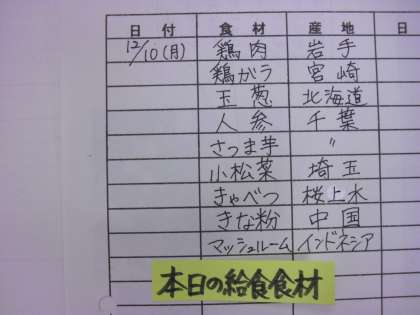 日付 食材 産地 日
12/10(月) 鶏肉 岩手
鶏がら 宮崎
玉葱 北海道
人参 千葉
さつま芋 〃
小松菜 埼玉
きゃべつ 桜上水
きな粉 中国
マッシュルーム インドネシア
本日の給食食材